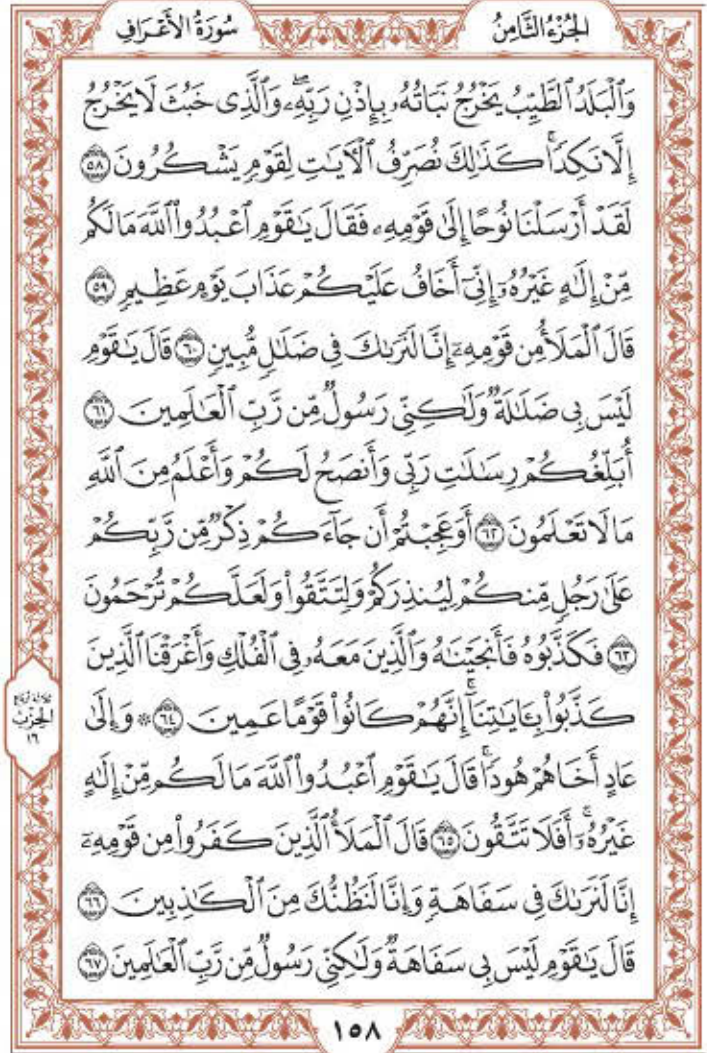 الجُزْءُ الثَّامِنُ
سُورَةُ الأَعْرَافِ
وَٱلْبَلَدُ ٱلطَّيِّبُ يَخْرُجُ نَبَاتُهُۥ بِإِذْنِ رَبِّهِۦۖ وَٱلَّذِى خَبُثَ لَا يَخْرُجُ
إِلَّا نَكِدًاۚ كَذَٰلِكَ نُصَرِّفُ ٱلْءَايَٰتِ لِقَوْمٍ يَشْكُرُونَ ٥٨
لَقَدْ أَرْسَلْنَا نُوحًا إِلَىٰ قَوْمِهِۦ فَقَالَ يَٰقَوْمِ ٱعْبُدُوا۟ ٱللَّهَ مَا لَكُم
مِّنْ إِلَٰهٍ غَيْرُهُۥٓ إِنِّىٓ أَخَافُ عَلَيْكُمْ عَذَابَ يَوْمٍ عَظِيمٍ ٥٩
قَالَ ٱلْمَلَأُ مِن قَوْمِهِۦٓ إِنَّا لَنَرَىٰكَ فِى ضَلَٰلٍ مُّبِينٍ ٦٠ قَالَ يَٰقَوْمِ
لَيْسَ بِى ضَلَٰلَةٌ وَلَٰكِنِّى رَسُولٌ مِّن رَّبِّ ٱلْعَٰلَمِينَ ٦١
أُبَلِّغُكُمْ رِسَٰلَٰتِ رَبِّى وَأَنصَحُ لَكُمْ وَأَعْلَمُ مِنَ ٱللَّهِ
مَا لَا تَعْلَمُونَ ٦٢ أَوَعَجِبْتُمْ أَن جَآءَكُمْ ذِكْرٌ مِّن رَّبِّكُمْ
عَلَىٰ رَجُلٍ مِّنكُمْ لِيُنذِرَكُمْ وَلِتَتَّقُوا۟ وَلَعَلَّكُمْ تُرْحَمُونَ
٦٣ فَكَذَّبُوهُ فَأَنجَيْنَٰهُ وَٱلَّذِينَ مَعَهُۥ فِى ٱلْفُلْكِ وَأَغْرَقْنَا ٱلَّذِينَ
كَذَّبُوا۟ بِـَٔايَٰتِنَآۚ إِنَّهُمْ كَانُوا۟ قَوْمًا عَمِينَ ٦٤ ۞ وَإِلَىٰ
عَادٍ أَخَاهُمْ هُودًاۚ قَالَ يَٰقَوْمِ ٱعْبُدُوا۟ ٱللَّهَ مَا لَكُم مِّنْ إِلَٰهٍ
غَيْرُهُۥٓۚ أَفَلَا تَتَّقُونَ ٦٥ قَالَ ٱلْمَلَأُ ٱلَّذِينَ كَفَرُوا۟ مِن قَوْمِهِۦٓ
إِنَّا لَنَرَىٰكَ فِى سَفَاهَةٍ وَإِنَّا لَنَظُنُّكَ مِنَ ٱلْكَٰذِبِينَ ٦٦
قَالَ يَٰقَوْمِ لَيْسَ بِى سَفَاهَةٌ وَلَٰكِنِّى رَسُولٌ مِّن رَّبِّ ٱلْعَٰلَمِينَ ٦٧
ثلاثة أرباع
الحِزْبُ
١٦
١٥٨